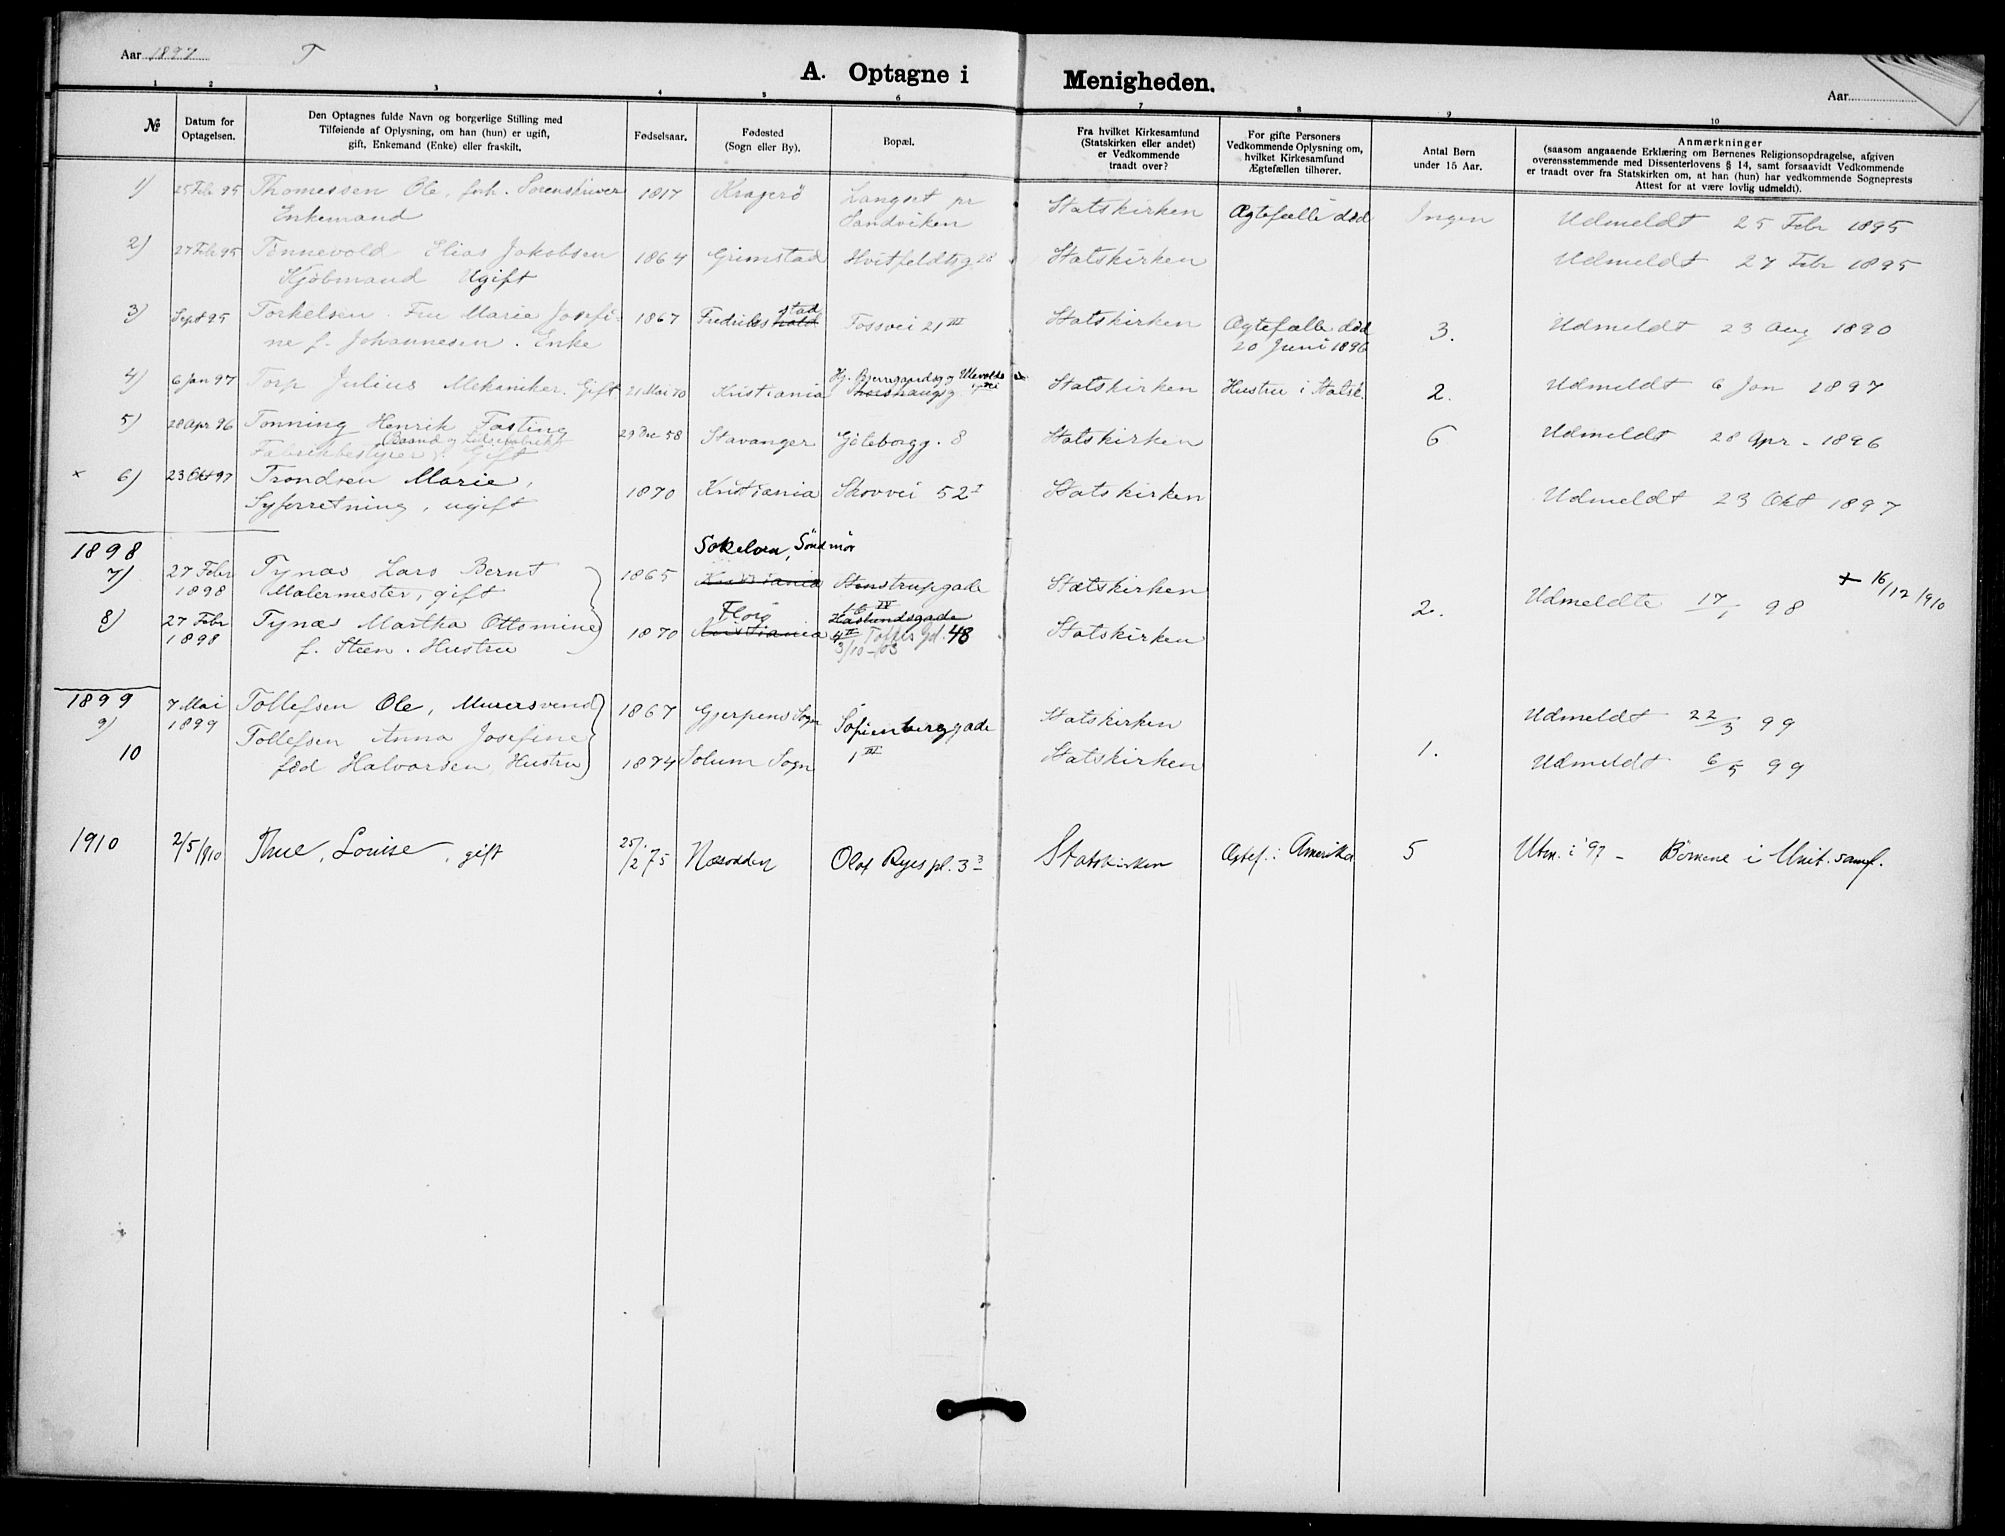 Aar 1897 T
A. Optagne i Menigheden.
Aar
1 2 3 4 5 6 7 8 9 10
№
Datum for
Optagelsen.
Den Optagnes fulde Navn og borgerlige Stilling med
Tilføiende af Oplysning, om han (hun) er ugift,
gift, Enkemand (Enke) eller fraskilt.
Fødselsaar.
Fødested
(Sogn eller By).
Bopæl.
Fra hvilket Kirkesamfund
(Statskirken eller andet)
er Vedkommende
traadt over?
For gifte Personers
Vedkommende Oplysning om,
hvilket Kirkesamfund
Ægtefællen tilhører.
Antal Børn
under 15 Aar.
Anmærkninger
(saasom angaaende Erklæring om Børnenes Religionsopdragelse, afgiven
overensstemmende med Dissenterlovens § 14, samt forsaavidt Vedkommende
er traadt over fra Statskirken om, at han (hun) har vedkommende Sogneprests
Attest for at være lovlig udmeldt).
1) 25 Febr 95 Thomessen Ole, fnh. Sorenskriver 1817 Kragerö Langset pr Statskirken Ægtefælle död Ingen Udmeldt 25 Febr 1895
Enkemand Sandviken
2) 27 Febr 95 Tønnevold Elias Jakobsen 1864 Grimstad Hvitfeldtsg 20 Statskirken Udmeldt 27 Febr 1895
Kjöbmand Ugift
stad
3) Sept 95 Torkelsen Fru Marie Josefi- 1867 Fredrikshald Tossvei 21 III Statskirken Ægtefælle död 3. Udmeldt 23 Aug 1890
ne f. Johannesen. Enke 20 Juni 1896
Hj. Bjerregaardsg og Ullevoldsvei
4) 6 Jan 97 Torp Julius Mekaniker. Gift 21 Mai 70 Kristiania Thorshaugsg. Statskirken Hustru i Statsk. 2. Udmeldt 6 Jan 1897
5) 28 Apr 96 Tonning Henrik Fasting 29 Dec 58 Stavanger Göteborgg. 8 Statskirken 6 Udmeldt 28 Apr - 1896
Baand og
Fabrikbestyrer Gift
× 6) 23 Okt 97 Trondsen Marie, 1870 Kristiania Skovvei 52 I Statskirken Udmeldt 23 Okt 1897
Syforretning, ugift
1898 Søkelven, Söndmör
7) 27 Febr Tynæs Lars Bernt 1865 Kristiania Stenstrupgade Statskirken + 16/12 1910
1898 Malermester, gift 2. Udmeldte 17/1 98
Florö 16 IV
8) 27 Febr Tynæs Martha Ottomine 1870 Kristiania Haslundsgade Statskirken
1898 f. Steen. Hustru 4 II Toftes Gd. 48
3/10-03
1899
9) 7 Mai Tollefsen Ole, Murersvend 1867 Gjerpens Sogn Sofienberggade Statskirken Udmeldt 22/3 99
1899 Tollefsen Anna Josefine
10 fød Halvorsen, Hustru 1874 Solum Sogn 1 IV Statskirken 1. Udmeldt 6/5 99
1910 2/5 1910 Thue, Louise, gift 25/2 75 Næsodden Olaf Ryes pl. 3 3 Statskirken Ægtef. i Amerika 5 Utm. i 97 - Børnene i Unit. samf.